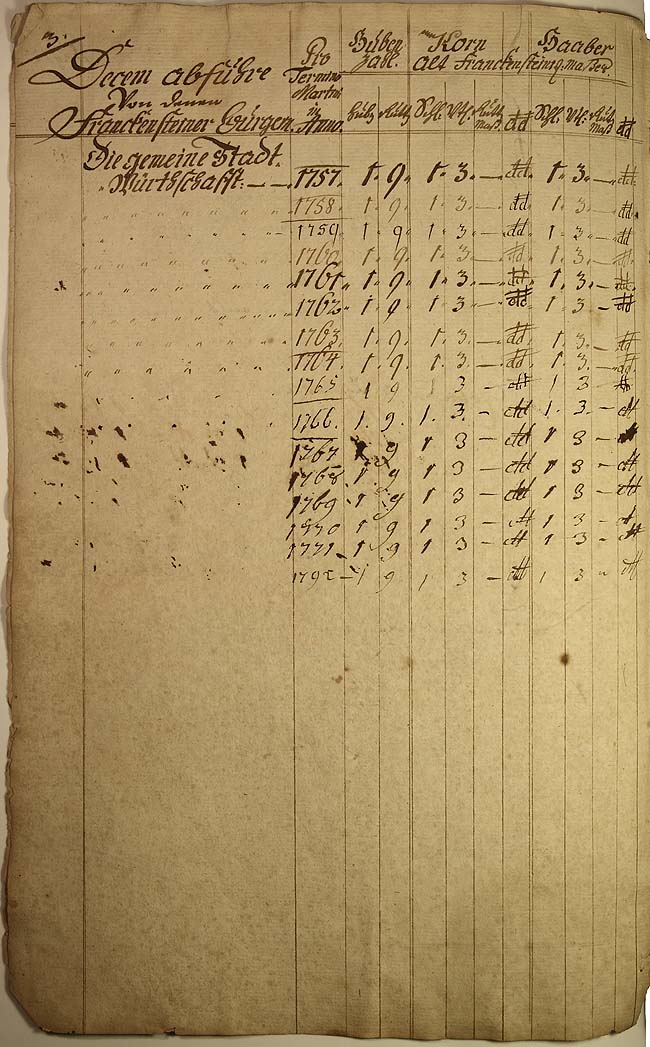 3.
Decem abführe
Von denen
Franckensteiner Bürgern.
Pro
Termino
Martini
in
Anno.
Huben
Zahl.
Hub. Ruth.
Korn
Alt Franckensteinig. Master.
Haaber
Schl. Vtl. dd Schl. Vtl. dd
Die gemeine Stadt
Würthschafft: — 1757. 1. 9. 1. 3. — dd. 1. 3. — dd.
1758. 1. 9. 1. 3. — dd. 1. 3. — dd.
1759. 1. 9. 1. 3. — dd. 1. 3. — dd
1760. 1. 9. 1. 3. — dd 1. 3. — dd
1761. 1. 9. 1. 3. — dd 1. 3. — dd.
1762. 1. 9. 1. 3. — dd 1. 3. — dd
1763. 1. 9. 1. 3. — dd 1. 3. — dd
1764. 1. 9. 1. 3. — dd 1. 3. — dd.
1765 1 9 1 3 — dd 1 3 dd
1766. 1. 9. 1. 3. — dd 1. 3. — dd
1767 9 1 3 — dd 1 3
1768 1 9 1 3 — dd 1 3 — dd
1769 1 9 1 3 — dd 1 3 — dd
1770 1 9 1 3 — dd 1 3 — d
1771 1 9 1 3 — dd 1 3 — dd
1 9 1 3 — dd 1 3 — dd